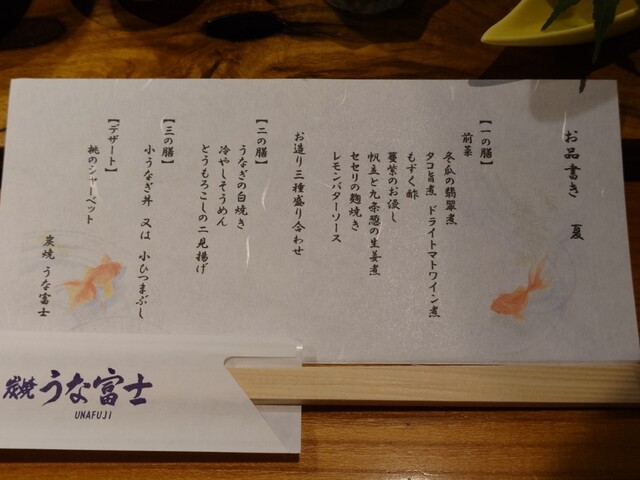 お品書き 夏
【一の膳】
前菜
冬瓜の翡翠煮
タコ旨煮 ドライトマトワイン煮
もずく酢
蔓紫のお浸し
帆立と九条葱の生姜煮
セセリの麹焼き
レモンバターソース
お造り三種盛り合わせ
【二の膳】
うなぎの白焼き
冷やしそうめん
とうもろこしの二見揚げ
【三の膳】
小うなぎ丼 又は 小ひつまぶし
【デザート】
桃のシャーベット
炭焼 うな富士
炭焼 うな富士
UNAFUJI